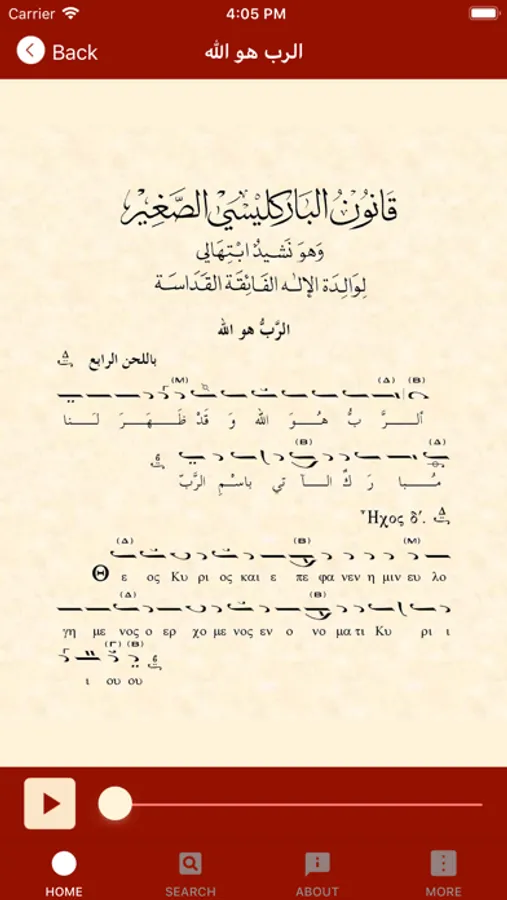 Carrier 4:05 PM
Back الرب هو الله
قَانُونُ البَارَكْلِيْسِي الصَّغِيْرْ
وَهوَ نَشيدٌ ابْتِهَالِي
لِوَالِدَة الإلـٰه الفَائِقَة القَدَاسَة
الرَّبُّ هو الله
باللحن الرابع
(M) (Δ) (B)
الـرَّ بُّ هُـوَ الله وَ قَدْ ظَـهَـرَ لَـنا
(B) (Δ)
مُـبا رَ كٌ الـآ تي باسْمِ الرَّبّ
Ἦχος δ΄.
(Δ) (B) (M)
Θ ε ος Κυ ρι ος και ε πε φα νεν η μιν ευ λο
(Δ) (B)
γη με νος ο ερ χο με νος εν ο νο μα τι Κυ ρι ι
(Γ) (B)
ι ου ου
HOME SEARCH ABOUT MORE